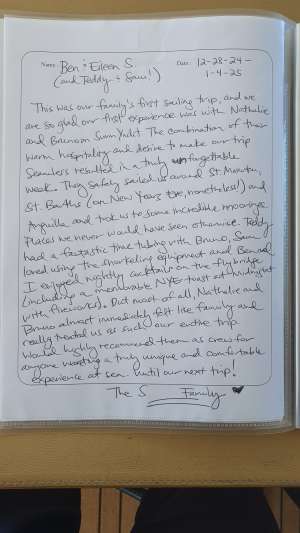 Name: Ben & Eileen S. Date: 12-28-24 –
(and Teddy & Sam!) 1-4-25
This was our family's first sailing trip, and we
are so glad our first experience was with Nathalie
and Bruno on Sunny Violet. The combination of their
warm hospitality and desire to make our trip
seamless resulted in a truly unforgettable
week. They safely sailed us around St. Martin,
St. Barths (on New Years Eve, nonetheless!) and
Anguilla and took us to some incredible moorings
places we never would have seen otherwise. Teddy
had a fantastic time tubing with Bruno, Sam
loved using the snorkeling equipment and Ben and
I enjoyed nightly cocktails on the flybridge
(including a memorable NYE toast at midnight
with fireworks). But most of all, Nathalie and
Bruno almost immediately felt like family and
really treated us as such our entire trip.
Would highly recommend them as crew for
anyone wanting a truly unique and comfortable
experience at sea. Until our next trip!
The S Family